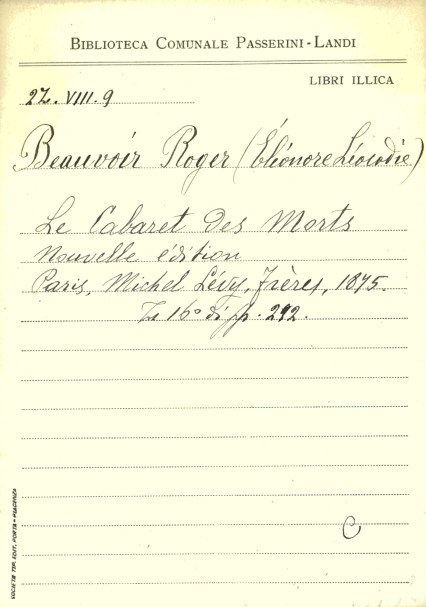 BIBLIOTECA COMUNALE PASSERINI-LANDI
LIBRI ILLICA
2Z. VIII. 9
Beauvoir Roger (Éléonore Léocadie)
Le Cabaret des Morts
Nouvelle édition
Paris, Michel Lévy, Frères, 1875.
In 16° di p. 292.
C
SOCIETÀ TIP. EDIT. PORTA - PIACENZA